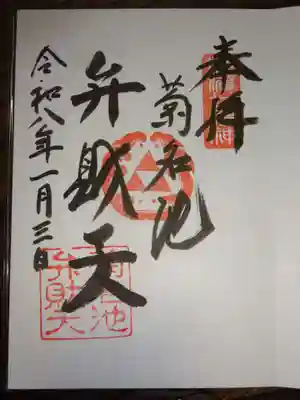 奉拝
菊名池
弁財天
令和八年一月三日
菊名池
弁財天